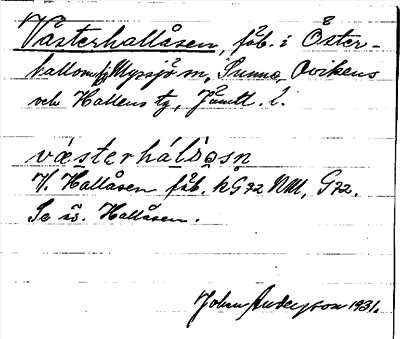 Västerhallåsen, fäb. i Öster-
hallom, Myrsjö m, Sunne, Ovikens
och Hallens tg, Jämtl. l.
västerhálåsn
V. Hallåsen fäb. KG72 NM, G72.
Se äv. Hallåsen.
John Andersson 1931.